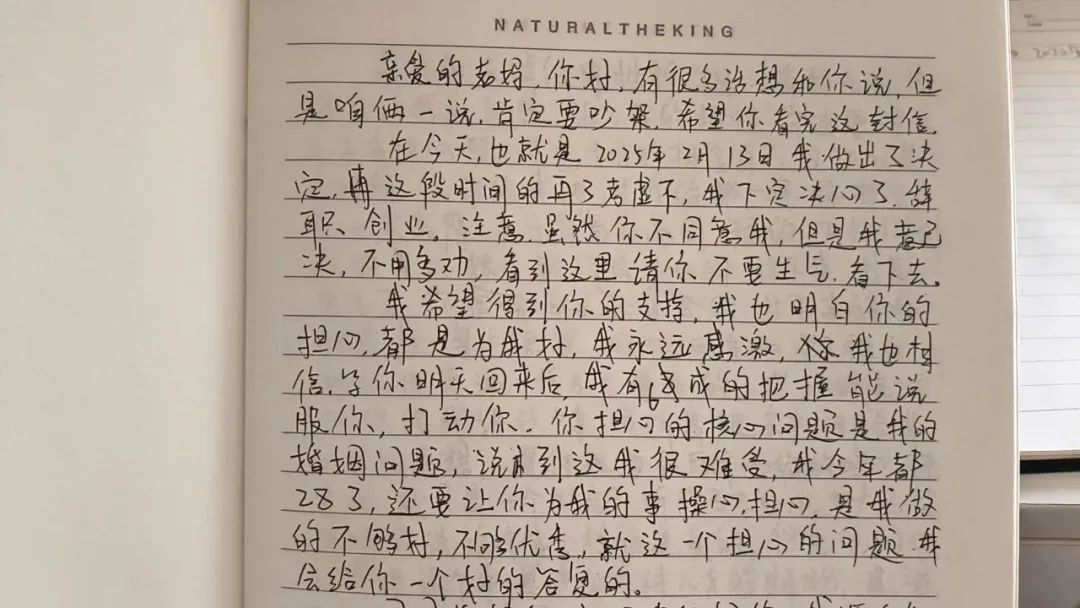 NATURALTHEKING
亲爱的老妈,你好,有很多话想和你说,但
是咱俩一说,肯定要吵架,希望你看完这封信,
在今天,也就是2025年2月13日我做出了决
定,再这段时间的再了考虑下,我下定决心了,辞
职、创业。注意,虽然你不同意我,但是我意已
决,不用多劝,看到这里请你不要生气,看下去。
我希望得到你的支持,我也明白你的
担心,都是为我好,我永远感激,我也相
信,等你明天回来后,我有成的把握能说
服你,打动你。你担心的核心问题是我的
婚姻问题,说到这我很难受,我今年都
28了,还要让你为我的事操心,担心,是我做
的不够好,不够优秀,就这一个担心的问题,我
会给你一个好的答复的。